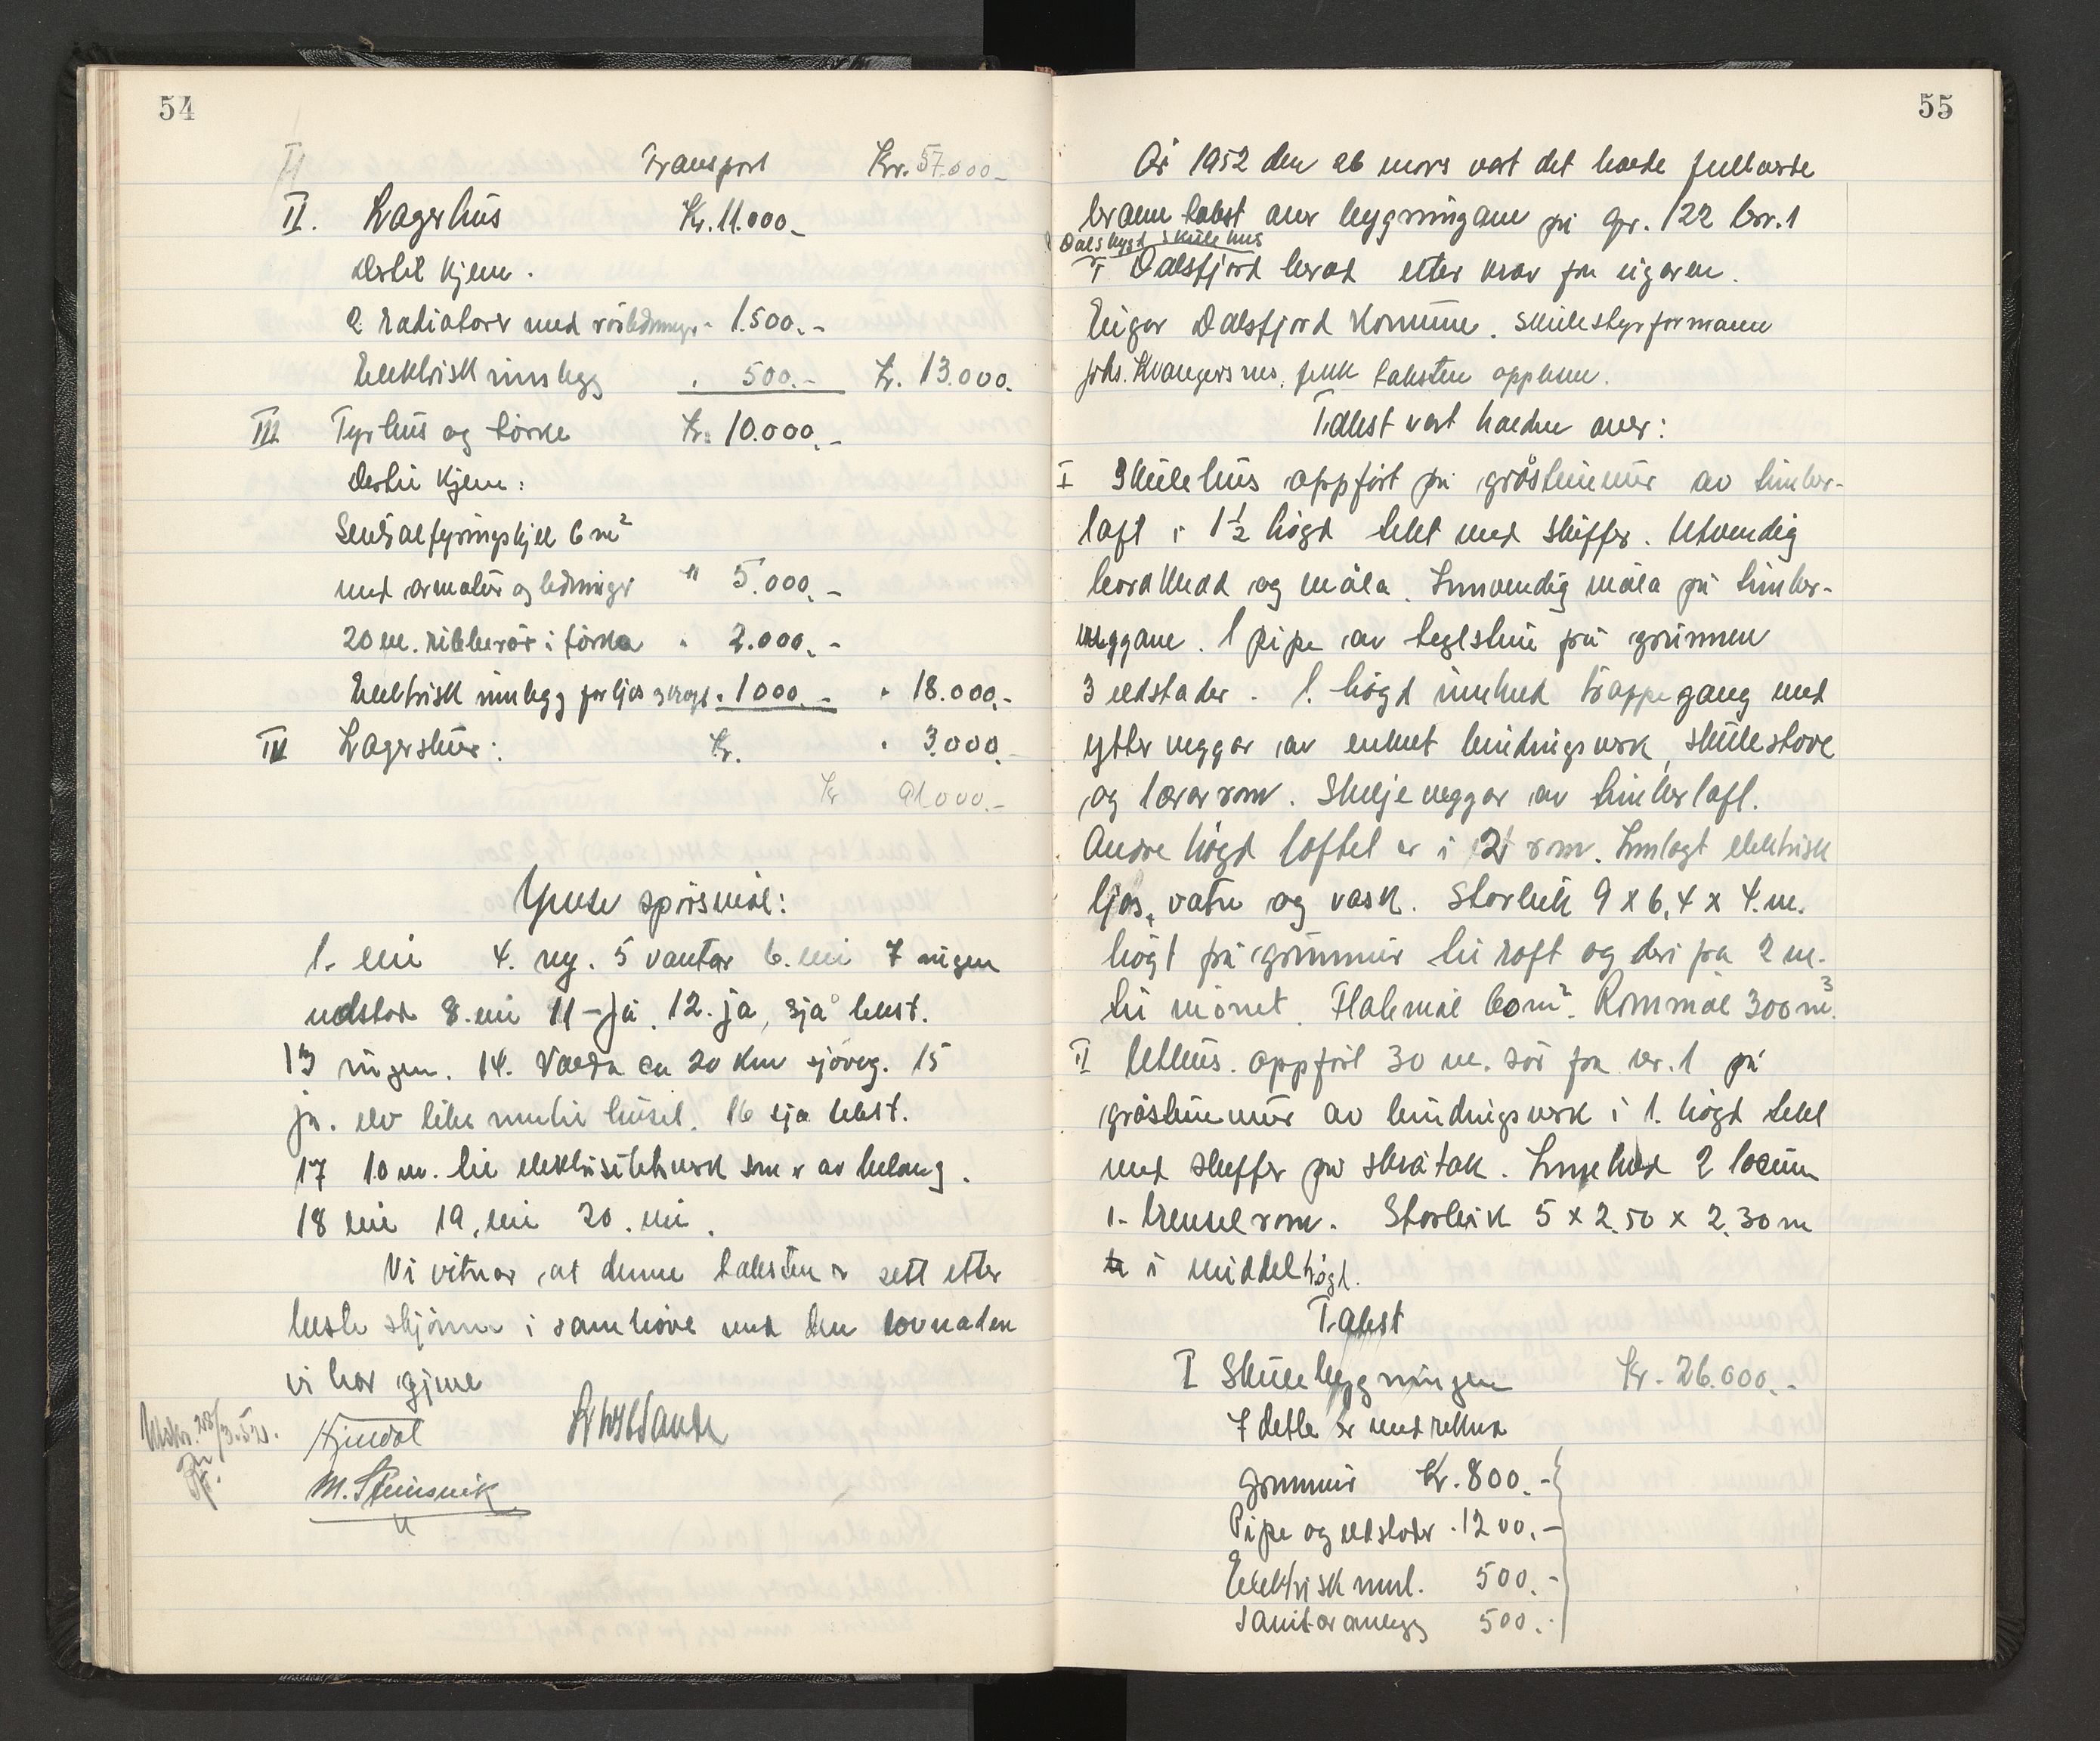 54
II Transport Kr. 57.000.-
II. Lagerhus Kr. 11.000.-
Dertil kjem.
2 radiatorer med rörledninger - 1.500.-
Elektrisk innlegg . 500.- Kr. 13.000.
III Fyrhus og törke Kr. 10.000.-
Dertil kjem:
Sentralfyringskjel 6 m²
med armatur og ledninger " 5.000.-
20 m. ribberör i törka " 2.000.-
Elektrisk innlegg for ljos og kraft . 1000.- " 18.000.-
IV Lagerskur: Kr. . 3.000.
Kr 91000.-
Ymse spörsmål:
1. nei 4. ny. 5 vantar 6. nei 7 ingen
eldstad 8. nei 11 - Ja. 12. ja, sjå takst.
13 ingen. 14. Volda ca 20 km sjöveg. 15
ja. elv like intil huset. 16 sja takst.
17 10 m. til elektrisitetsverk som er av belang.
18 nei 19. nei 20. nei.
Vi vitnar at denne taksten er sett etter
beste skjönn i samhöve med den lovnaden
vi har gjeve
Utskr. 28/3-52.
M. Steinsvik
55
År 1952 den 26 mars vart det halde fullverde
branntakst over bygningane på gnr. 122 bnr. 1
Dalsbygd skulehus
i Dalsfjord herad etter krav fra eigaren.
Eigar Dalsfjord Kommune. Skulestyreformann
Johs. Kvangersnes, fekk taksten oppteken.
Takst vart halden over:
I Skulehus oppfört på gråsteinmur av timber-
laft i 1½ högd tekt med skiffer. Utvendig
bordkledd og måla. Innvendig måla på timber-
veggane. 1 pipe av teglstein frå grunnen
3 eldstader. 1. högd innheld trappegang med
ytter veggar av enkelt bindingsverk, skulestove
og lærarrom. Skiljeveggar av timberlaft.
Andre högd loftet er i 2 rom. Innlagt elektrisk
ljos, vatn og vask. Storleik 9 x 6,4 x 4. m.
högt frå grunnmur til raft og deri fra 2 m.
til mönet. Flatemål 60 m². Rommål 300 m³.
II Uthus. oppfört 30 m. sör for nr. 1 på
gråsteinmur av bindingsverk i 1. högd tekt
med skiffer på skråtak. Inneheld 2 locum
1. brensel rom. Storleik 5 x 2.50 x 2.30 m
i middelhögd.
Takst
I Skulebygningen Kr. 26.000.-
I dette er medrekna
grunnmur Kr. 800.-
Pipe og eldstader . 1200.-
Elektrisk innl. 500.-
Sanitæranlegg 500.-